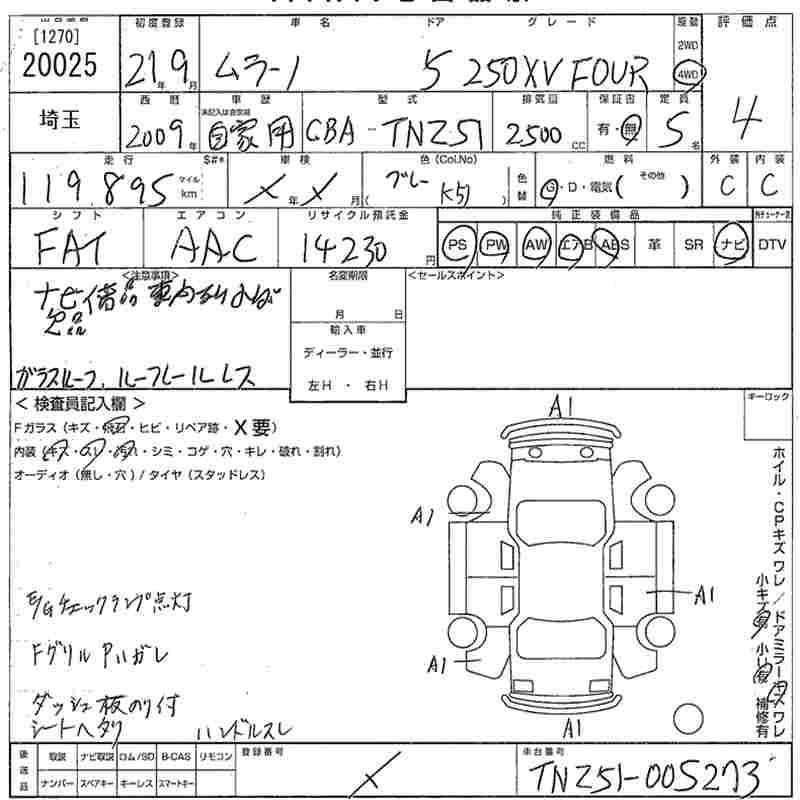 [1270]
20025
初度登録 車名 ドア グレード 駆動 評価点
21年9月 ムラーノ 5 250XV FOUR 2WD 4WD 4
埼玉
西暦 車歴 型式 排気量 保証書 定員
未記入は自家用
2009年 自家用 CBA-TNZ51 2500cc 有・無 5名
走行 $#* 車検 色(Col.No) 色替 燃料 外装 内装
119,895 マイル km ×年×月 グレー(K51) G・D・電気(その他) C C
シフト エアコン リサイクル預託金 純正装備品
FAT AAC 14230円 PS PW AW エアB ABS 革 SR ナビ DTV
<注意事項> 名変期限 <セールスポイント>
ナビ備品車内あれば
欠品
月 日
輸入車
ディーラー・並行
左H・右H
ガラスルーフ、ルーフレールレス
キーロック
< 検査員記入欄 >
Fガラス(キズ・飛石・ヒビ・リペア跡・X要)
内装(キズ・スレ・汚れ・シミ・コゲ・穴・キレ・破れ・割れ)
オーディオ(無し・穴)/タイヤ(スタッドレス)
A1
A1
A1
A1
A1
ホイル・CPキズワレ/ドアミラーキズワレ
小キズ有 小凹有 補修有
E/Gチェックランプ点灯
Fグリル Pハガレ
ダッシュ板のり付
シートヘタリ ハンドルスレ
後送品 取説 ナビ取説 ロム/SD B-CAS リモコン 登録番号 車台番号
ナンバー スペアキー キーレス スマートキー × TNZ51-005273